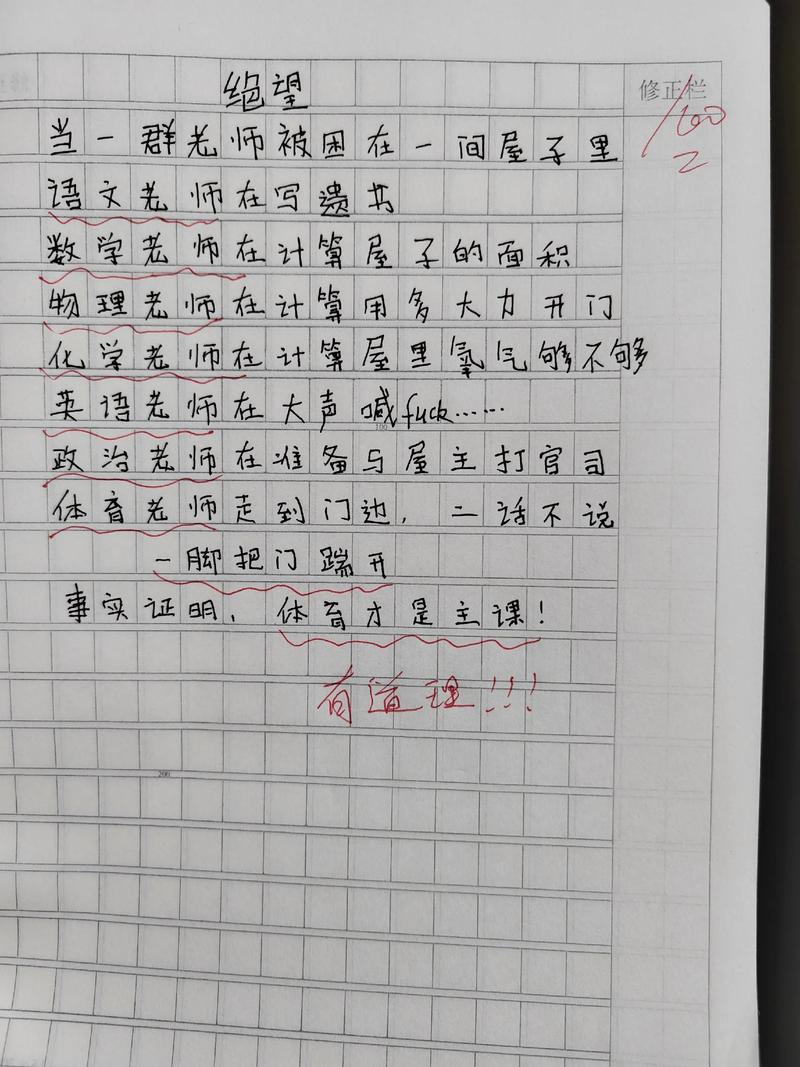 绝望
修正栏
100
2
当一群老师被困在一间屋子里
语文老师在写遗书
数学老师在计算屋子的面积
物理老师在计算用多大力开门
化学老师在计算屋里氧气够不够
英语老师在大声喊fuck……
100
政治老师在准备与屋主打官司
体育老师走到门边，二话不说
一脚把门踹开
事实证明、体育才是主课！
有道理!!!
200